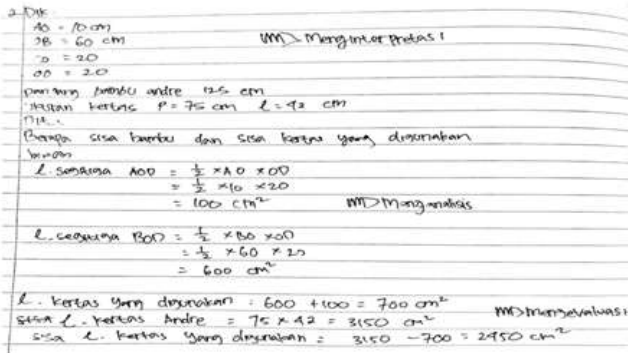 2. Dik
AO = 10 cm
OB = 60 cm
= 20
OD = 20
MD> Menginterpretasi
bambu andre 125 cm
kertas P = 75 cm l = 42 cm
Dit.
Berapa sisa bambu dan sisa kertas yang digunakan
l. segitiga AOD = 1/2 × AO × OD
= 1/2 × 10 × 20
= 100 cm²
MD> Menganalisis
l. segitiga BOD = 1/2 × BO × OD
= 1/2 × 60 × 20
= 600 cm²
l. kertas yang digunakan = 600 + 100 = 700 cm²
l. kertas Andre = 75 × 42 = 3150 cm²
MD> mengevaluasi
sisa l. kertas yang digunakan = 3150 - 700 = 2450 cm²